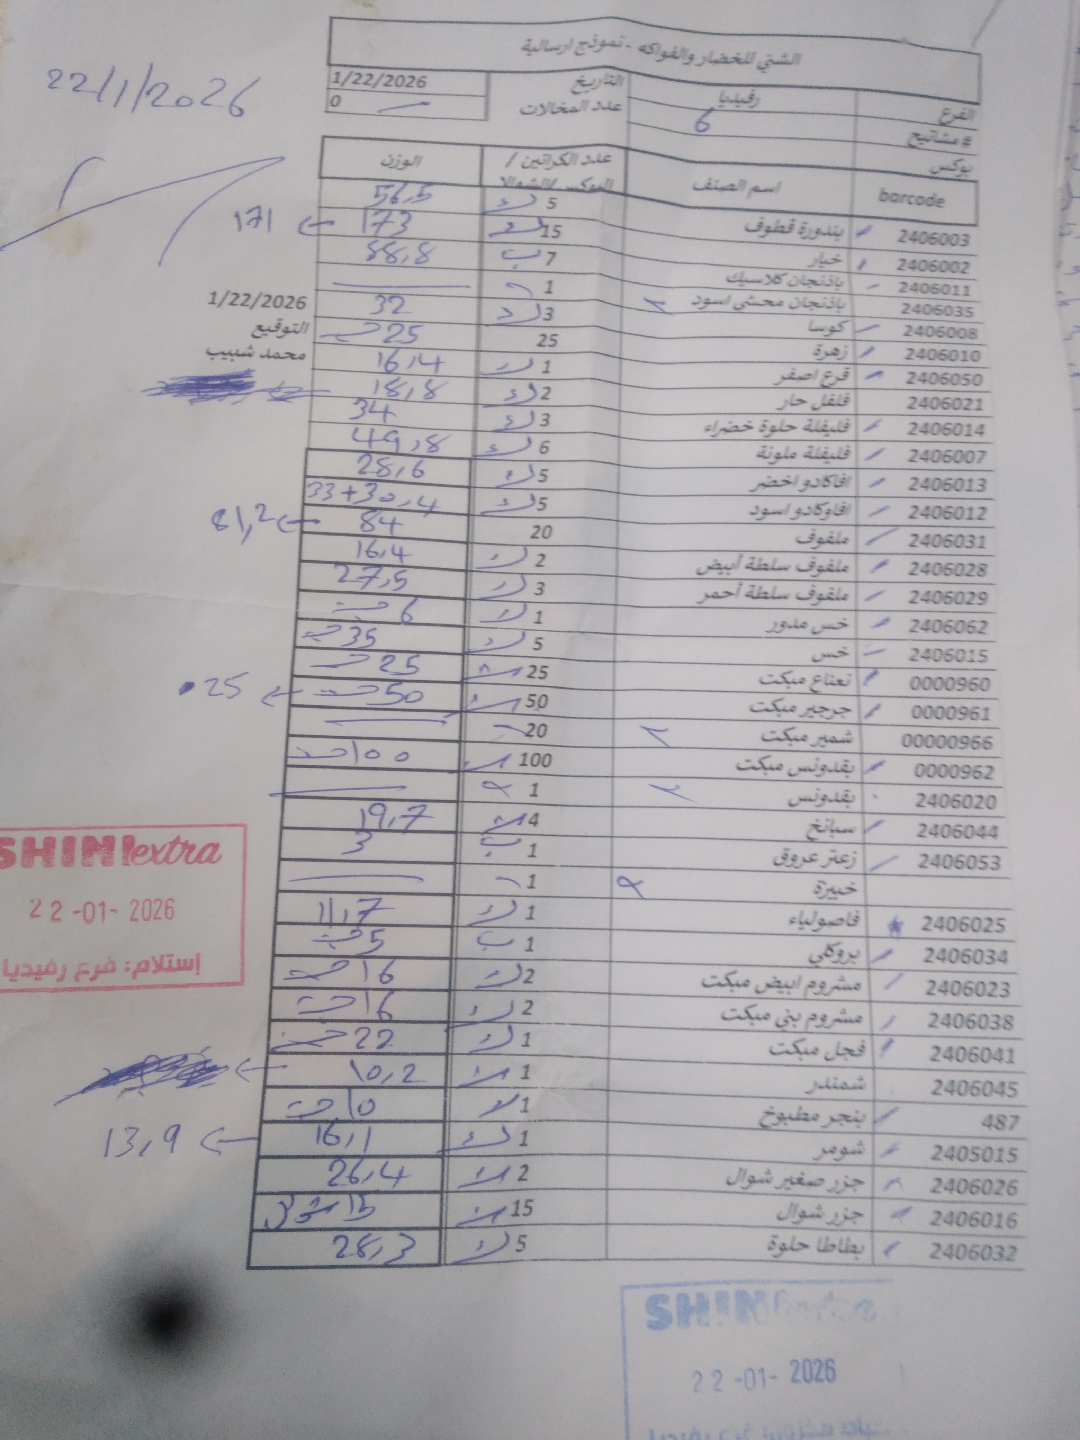 الشني للخضار والفواكه - نموذج ارسالية
22/1/2026
الفرع رفيديا التاريخ 1/22/2026
# مشاتيح 6 عدد المخالات 0
بوكس
barcode اسم الصنف عدد الكراتين / البوكس/الشوالا الوزن
2406003 بندورة قطوف 5 ك 56,5
2406002 خيار 15 ك 173 ← 171
2406011 باذنجان كلاسيك 7 ب 88,8
2406035 باذنجان محشي اسود 1
2406008 كوسا 3 ك 32
2406010 زهرة 25 25 حبة
2406050 قرع اصفر 1 ك 16,4
2406021 فلفل حار 2 ك 18,8
2406014 فليفلة حلوة خضراء 3 ك 34
2406007 فليفلة ملونة 6 ك 49,8
2406013 افاكادو اخضر 5 ك 28,6
2406012 افاوكادو اسود 5 ك 33+30,4
2406031 ملفوف 20 84 ← 81,2
2406028 ملفوف سلطة أبيض 2 ك 16,4
2406029 ملفوف سلطة أحمر 3 ك 27,5
2406062 خس مدور 1 ك 6 حبة
2406015 خس 5 ك 35 حبة
0000960 نعناع مبكت 25 25 حبة
0000961 جرجير مبكت 50 50 حبة ← 25
00000966 شمير مبكت 20
0000962 بقدونس مبكت 100 100 حبة
2406020 بقدونس 1
2406044 سبانخ 4 19,7
2406053 زعتر عروق 1 ب 3
خبيزة 1
2406025 فاصولياء 1 ك 11,7
2406034 بروكلي 1 ب 5 حبة
2406023 مشروم ابيض مبكت 2 ك 16 حبة
2406038 مشروم بني مبكت 2 ك 16 حبة
2406041 فجل مبكت 1 ك 22 حبة
2406045 شمندر 1 10,2
487 بنجر مطبوخ 1 10 حبة
2405015 شومر 1 ك 16,1 ← 13,9
2406026 جزر صغير شوال 2 26,4
2406016 جزر شوال 15 15
2406032 بطاطا حلوة 5 ك 28,3
1/22/2026
التوقيع
محمد شبيب
SHINI extra
22-01-2026
إستلام: فرع رفيديا
SHINI extra
22-01-2026